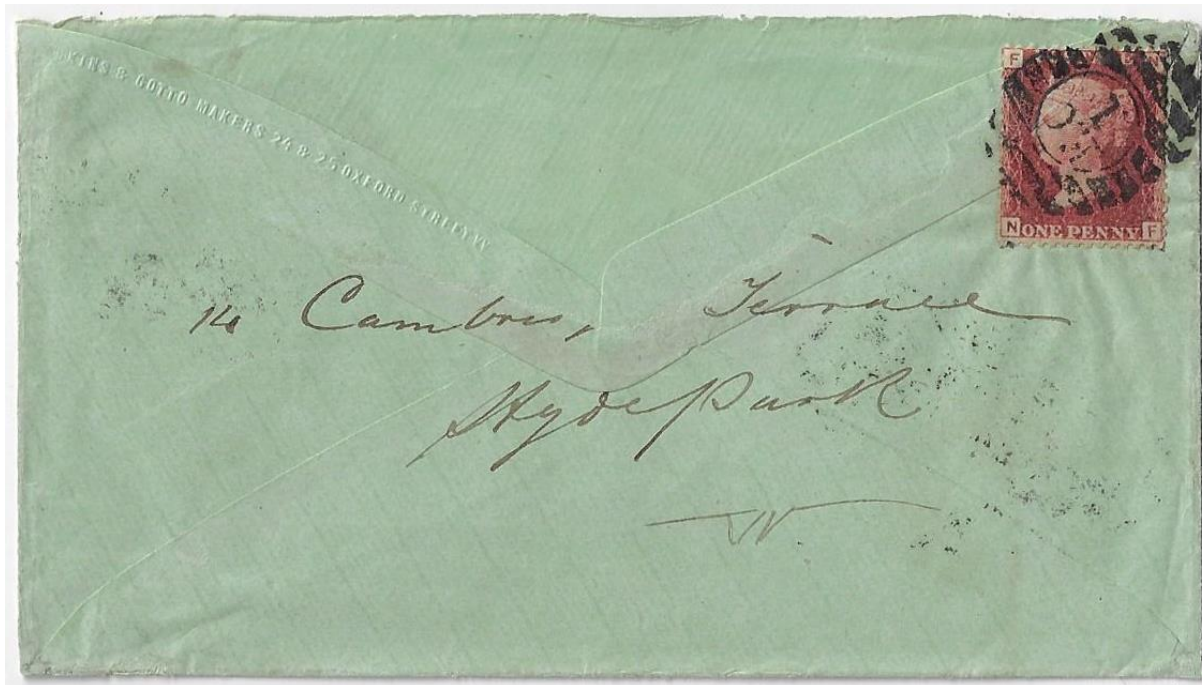 KINS & GOTTO MAKERS 24 & 25 OXFORD STREET W
F
N ONE PENNY F
14 Cambri, Terrace
Hyde Park
W